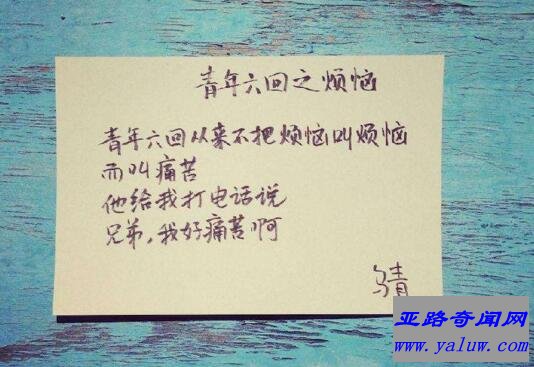 青年六回之烦恼
青年六回从来不把烦恼叫烦恼
而叫痛苦
他给我打电话说
兄弟，我好痛苦啊
乌青
亚路奇闻网
www.yaluw.com